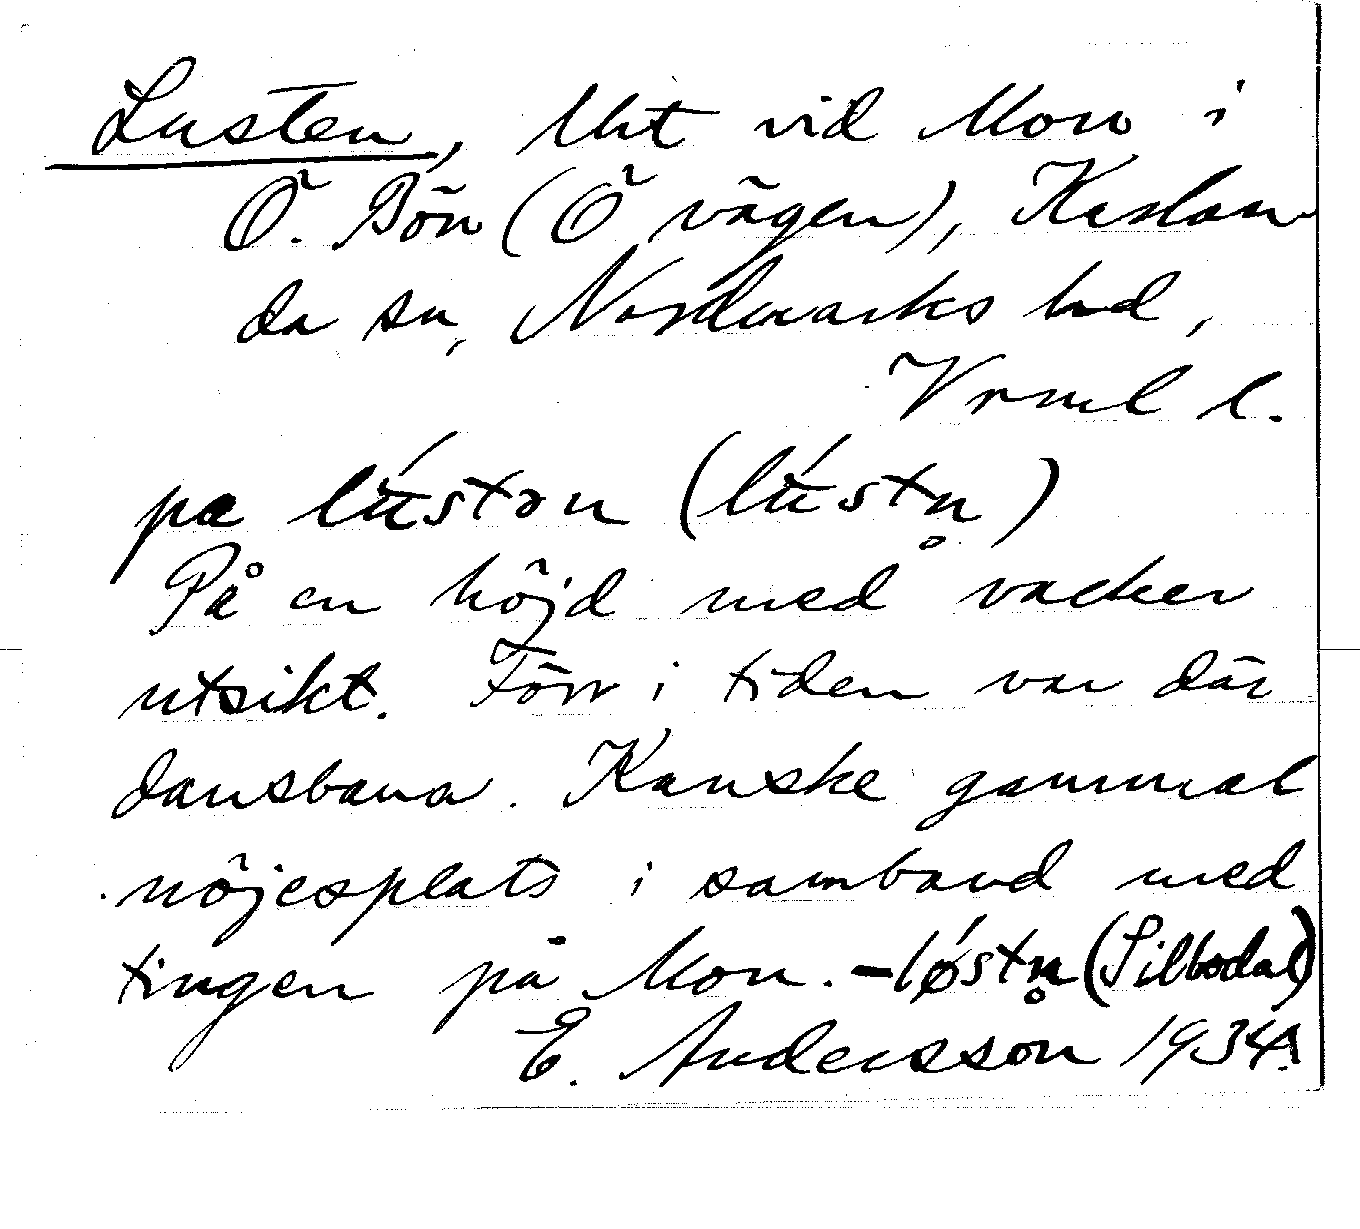 Lusten, lht vid Mon i
Ö. Bön (Ö vägen), Karlan-
da sn, Nordmarks hd,
Vrml l.
pa lústən (lústn̥)
På en höjd med vacker
utsikt. Förr i tiden var där
dansbana. Kanske gammal
nöjesplats i samband med
tingen på Mon. – lǿstn̥ (Silbodal)
E. Andersson 1934.